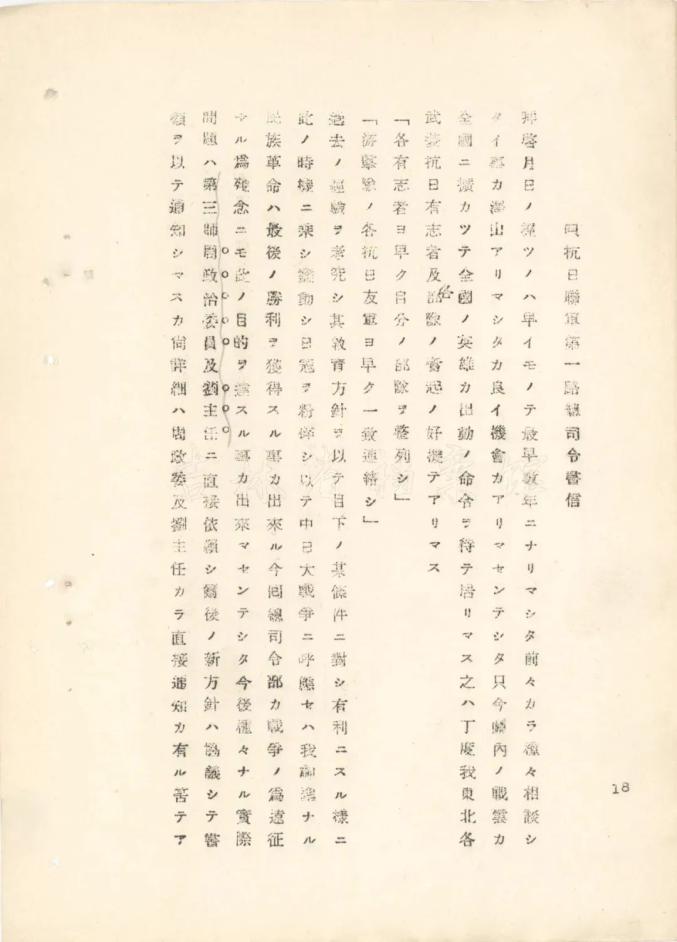 四抗日聯軍第一路總司令書信
拜啓月日ノ經ツノハ早イモノテ最早數年ニナリマシタ前々カラ種々相談シ
タイ事カ澤山アリマシタカ良イ機會カアリマセンテシタ只今關內ノ戰雲カ
全國ニ擴カツテ全國ノ英雄カ出動ノ命令ヲ待テ居リマス之ハ丁度我東北各
武裝抗日有志者及各部隊ノ奮起ノ好機テアリマス
「各有志者ヨ早ク自分ノ部隊ヲ整列シ」
「游擊隊ノ各抗日友軍ヨ早ク一致連絡シ」
過去ノ經驗ヲ考究シ其敎育方針ヲ以テ目下ノ某條件ニ對シ有利ニスル樣ニ
此ノ時機ニ乘シ活動シ日寇ヲ粉碎シ以テ中日大戰爭ニ呼應セハ我ナル
民族革命ハ最後ノ勝利ヲ獲得スル事カ出來ル今回總司令部カ戰爭ノ爲遠征
セル爲殘念ニモ此ノ目的ヲ達スル事カ出來マセンテシタ今後種々ナル實際
問題ハ第三師周政治委員及劉主任ニ直接依賴シ爾後ノ新方針ハ協議シテ書
類ヲ以テ通知シマスカ尙詳細ハ周政委及劉主任カラ直接通知カ有ル筈テア
18